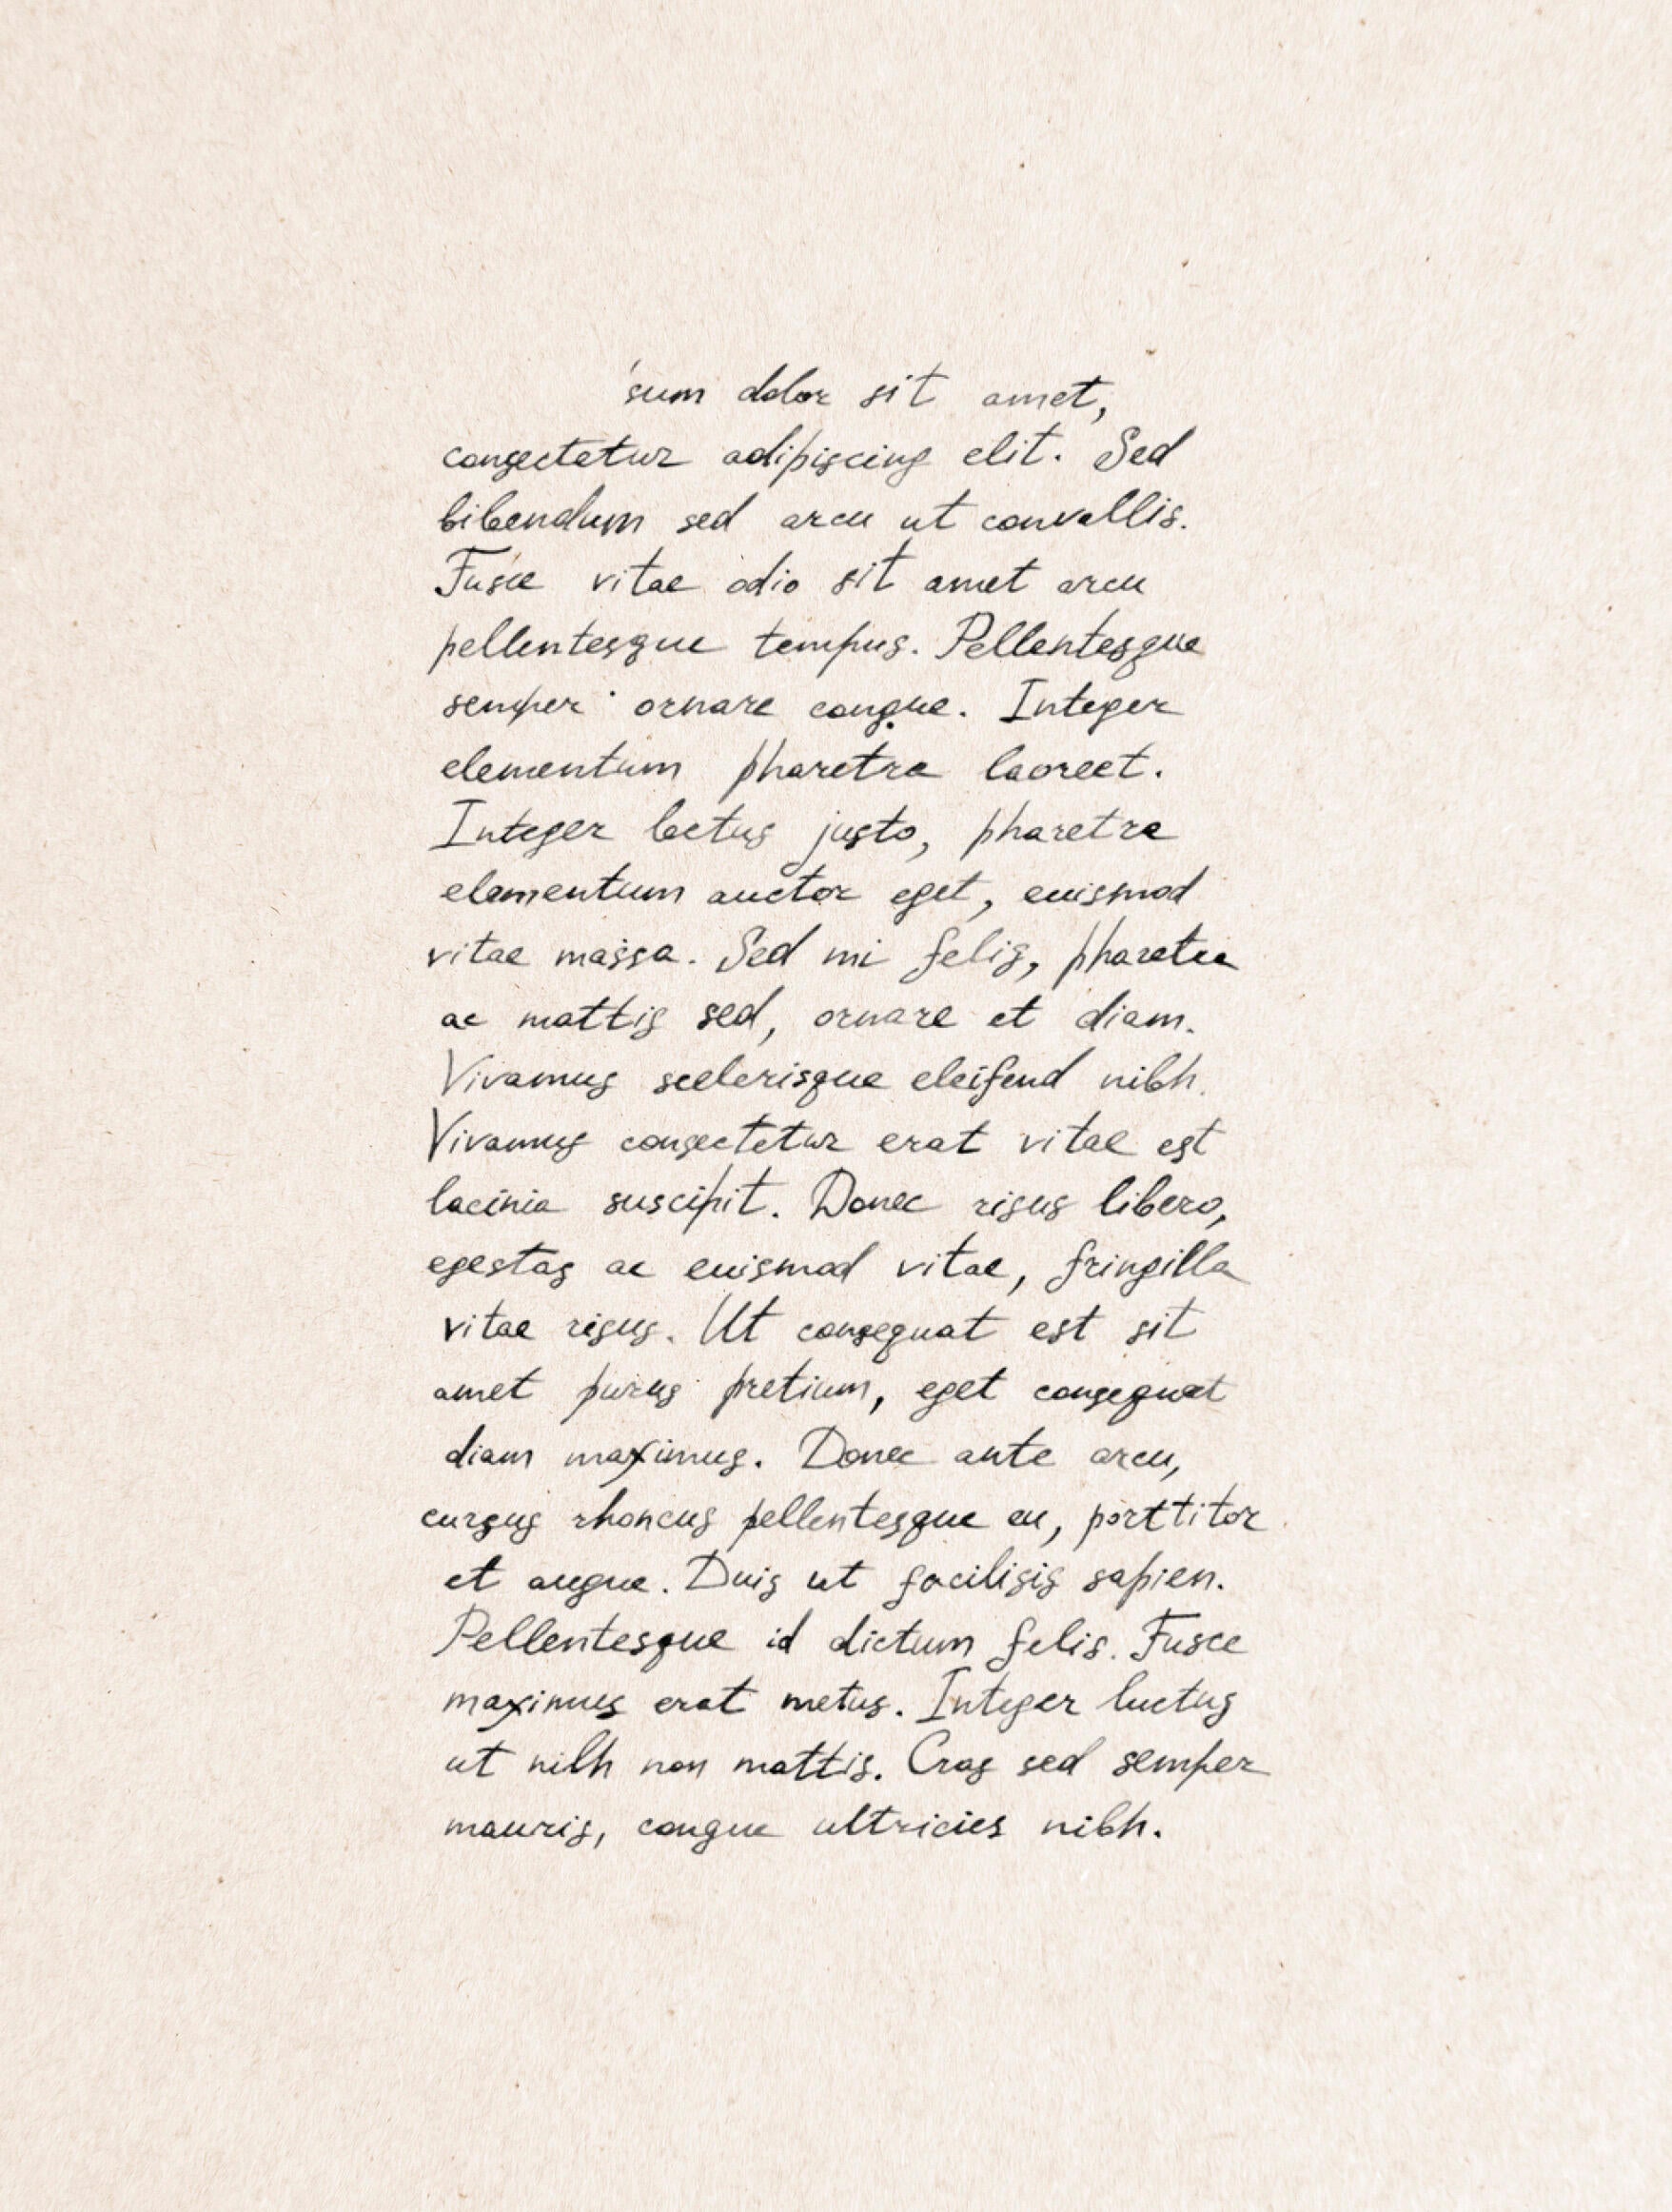 sum dolor sit amet,
consectetur adipiscing elit. Sed
bibendum sed arcu ut convallis.
Fusce vitae odio sit amet arcu
pellentesque tempus. Pellentesque
semper ornare congue. Integer
elementum pharetra laoreet.
Integer lectus justo, pharetra
elementum auctor eget, euismod
vitae massa. Sed mi felis, pharetra
ac mattis sed, ornare et diam.
Vivamus scelerisque eleifend nibh.
Vivamus consectetur erat vitae est
lacinia suscipit. Donec risus libero,
egestas ac euismod vitae, fringilla
vitae risus. Ut consequat est sit
amet purus pretium, eget consequat
diam maximus. Donec ante arcu,
cursus rhoncus pellentesque eu, porttitor
et augue. Duis ut facilisis sapien.
Pellentesque id dictum felis. Fusce
maximus erat metus. Integer luctus
ut nibh non mattis. Cras sed semper
mauris, congue ultricies nibh.